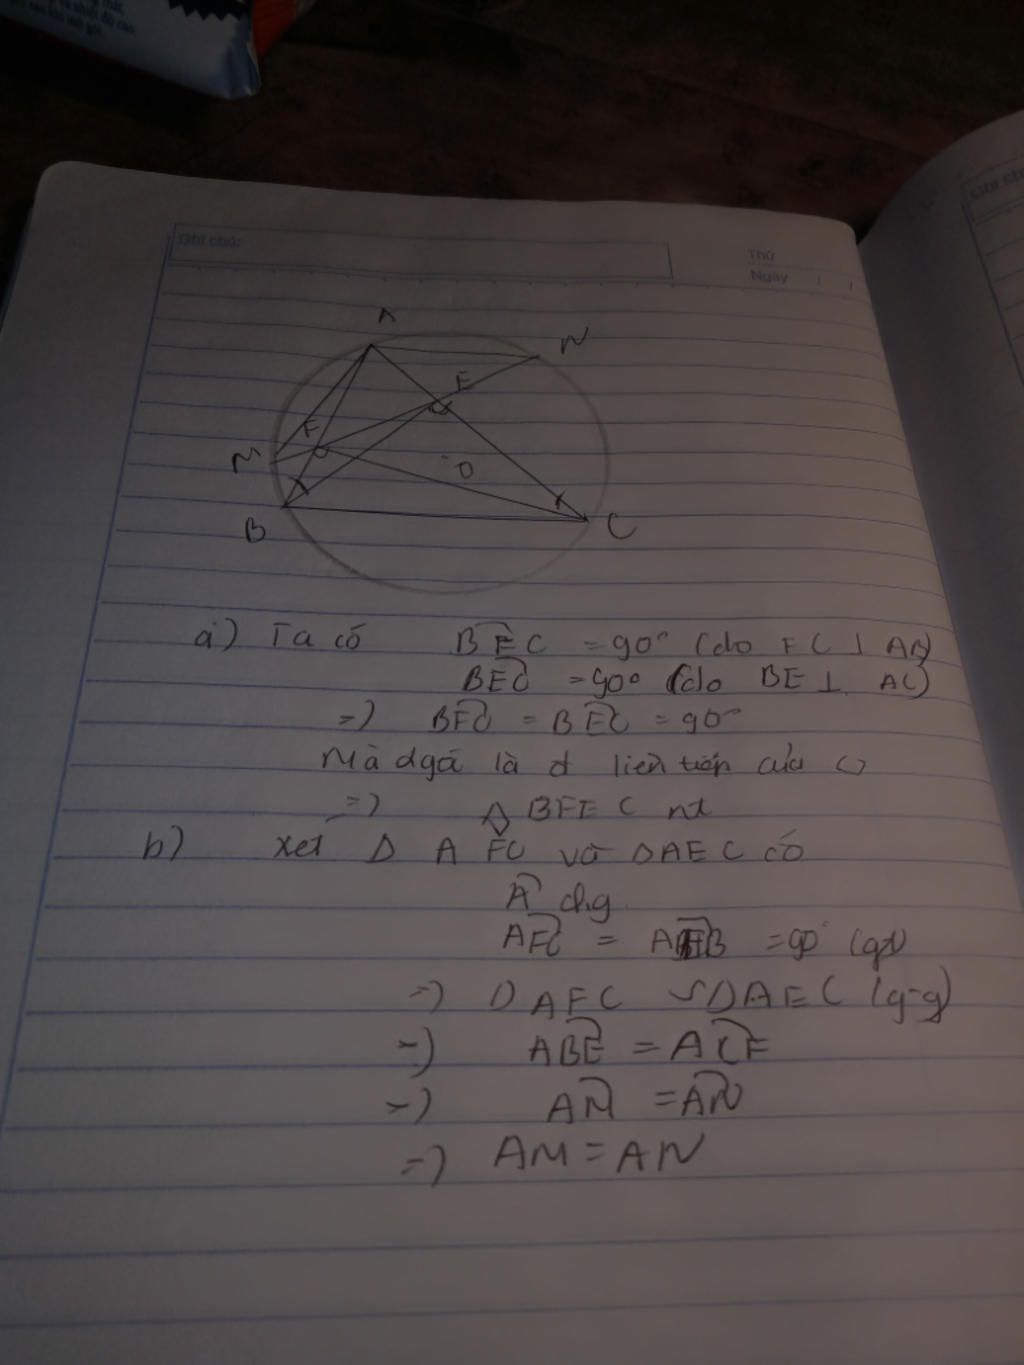 Ghi chú:
Thứ
Ngày / /
Ghi ch
A
N
E
F
M
O
B
C
a) Ta có BFC = 90° (do FC ⊥ AB)
BEC = 90° (do BE ⊥ AC)
=> BFC = BEC = 90°
Mà là đ liên tiếp của
=> BFEC nt
b) Xét Δ AFC và ΔAEC có
A chg
AFC = AEB = 90° (gt)
=> Δ AFC ∽ ΔAEC (g-g)
=> ABE = ACF
=> AM = AN
=> AM = AN